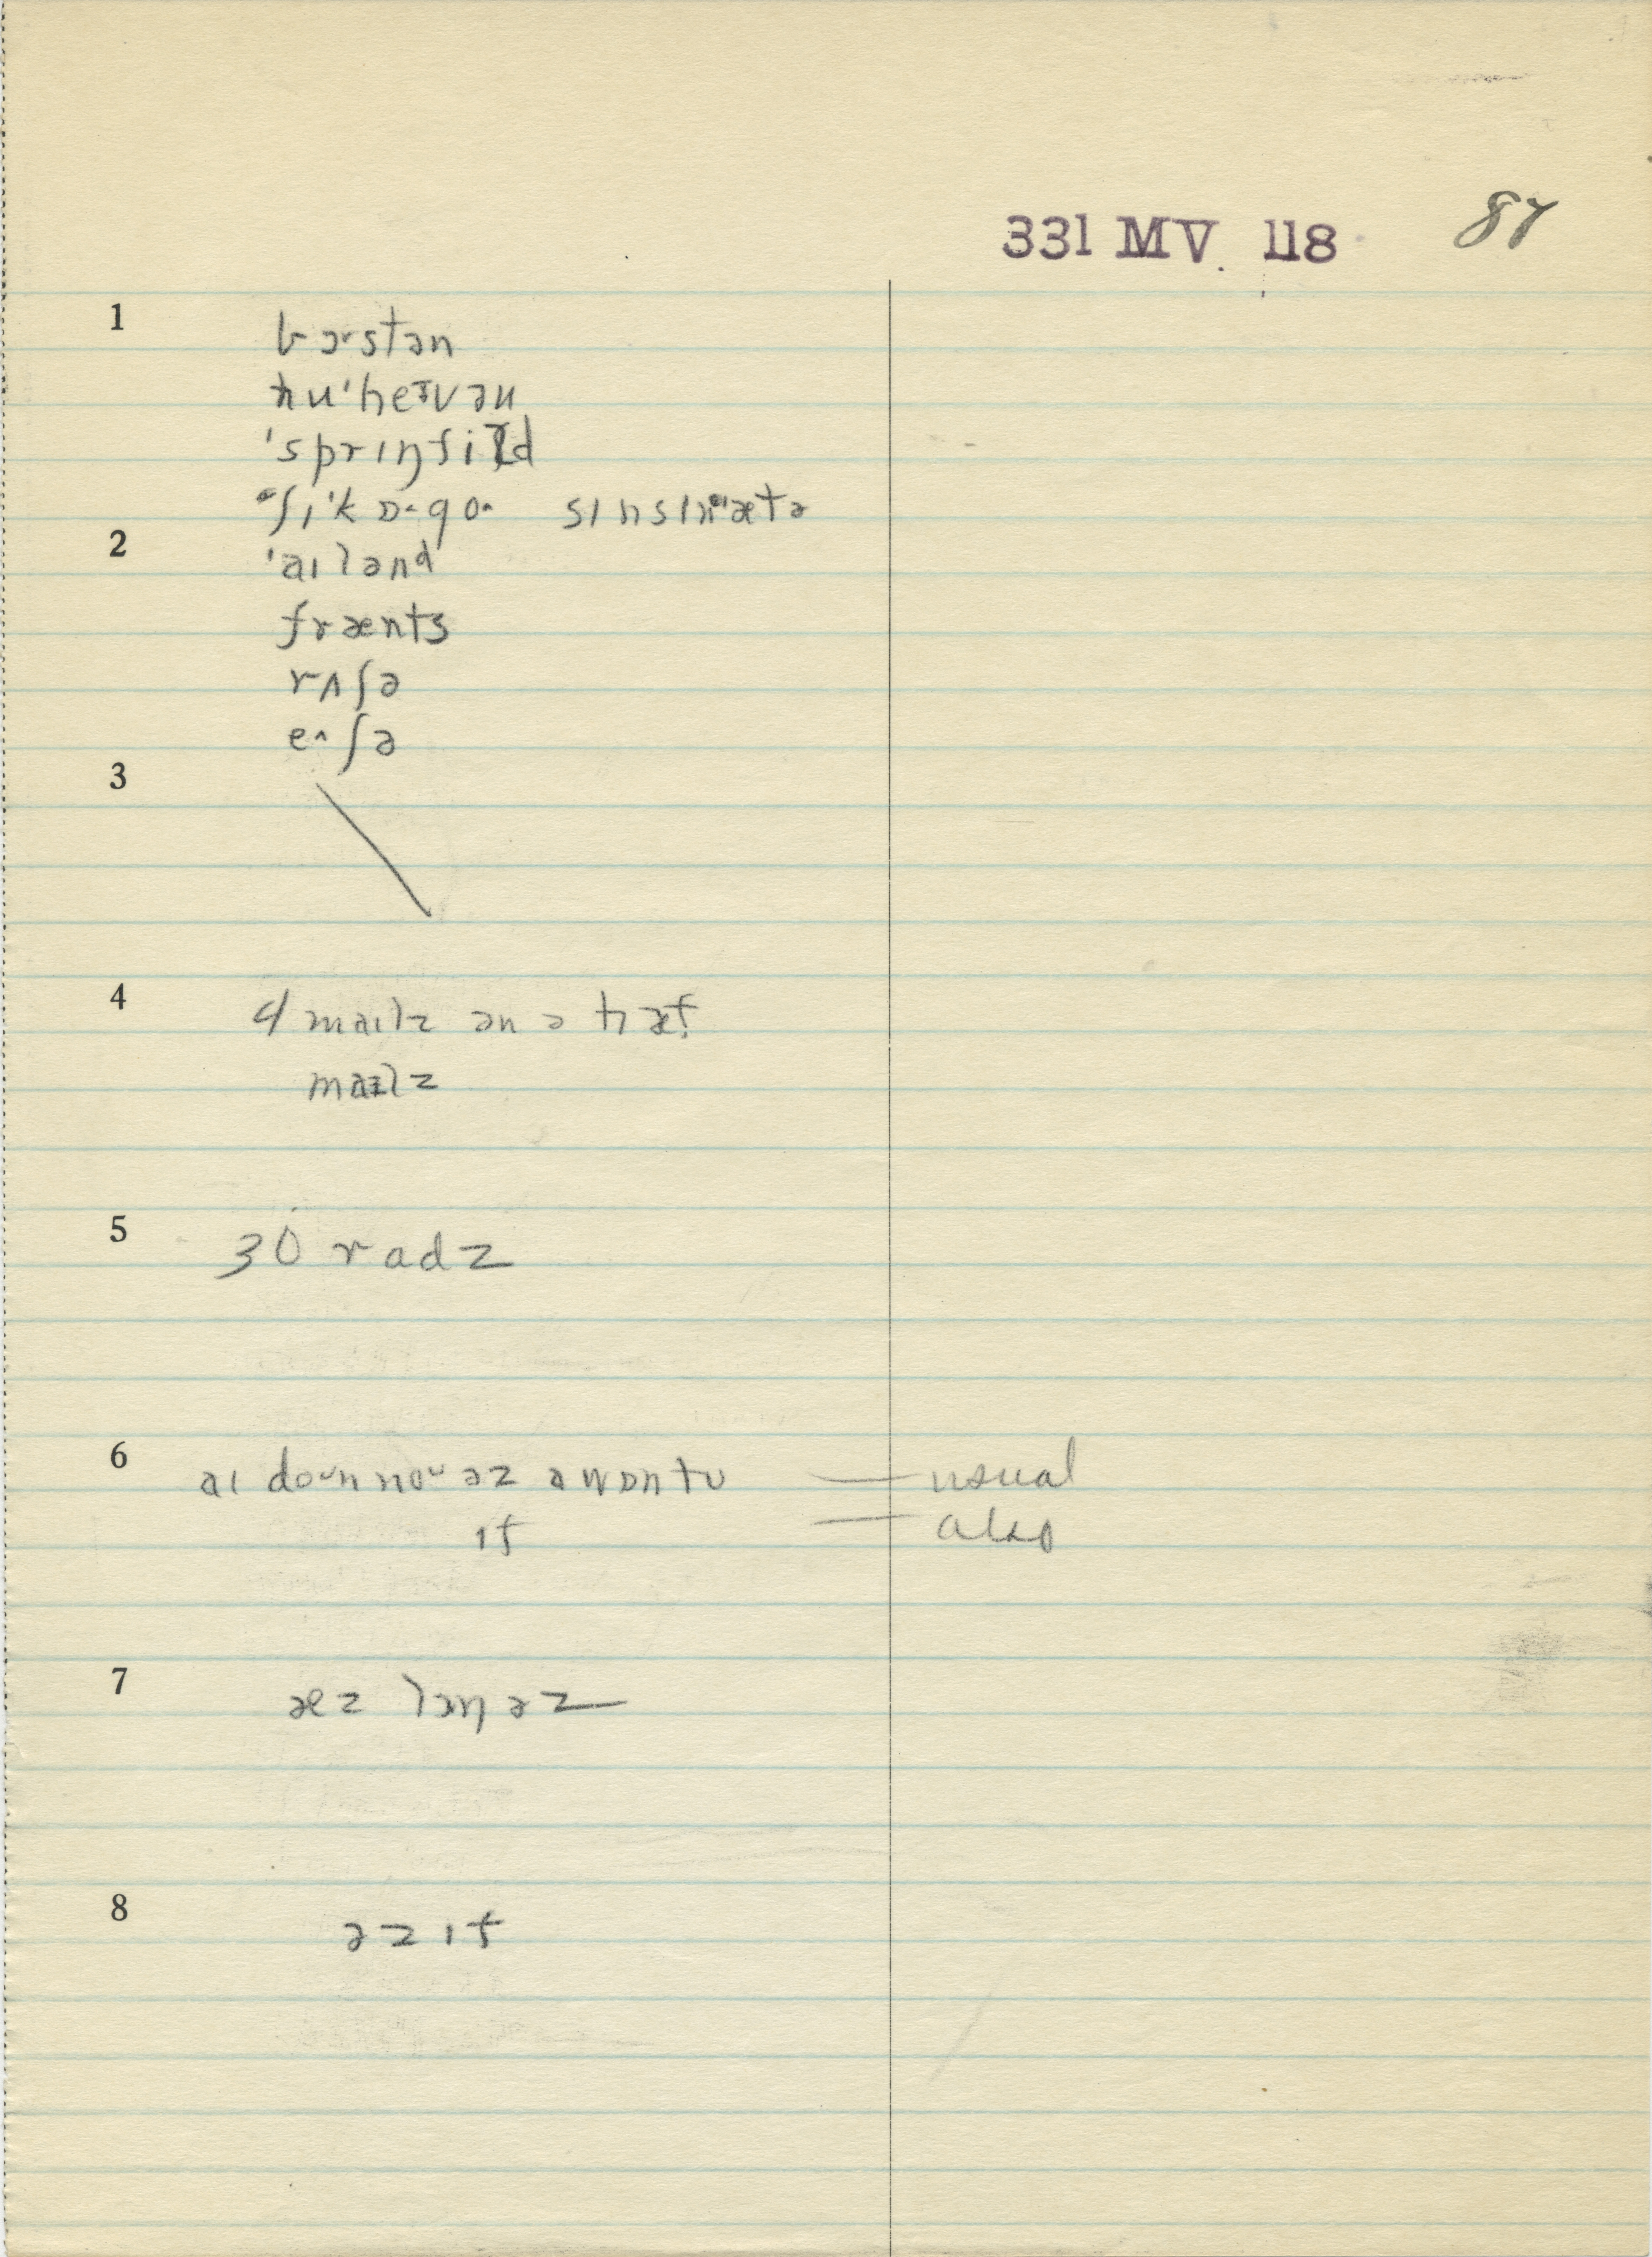 331 MV. 118 87
1
bɔˑstən
nuˈheɪvən
ˈsprɪŋfiɫd
ʃɪˈkɒˑgoˑ sɪnsɪnˈætə
2
ˈaɪlənd
frænts
rʌʃə
eˑʃə
3
4 4 maɪlz ən ə hæf
maɪlz
5 30 radz
6 aɪ doˑnnoˑ əz a wɒntu — usual
ɪf — also
7 æz lɔŋ əz
8 əz ɪf